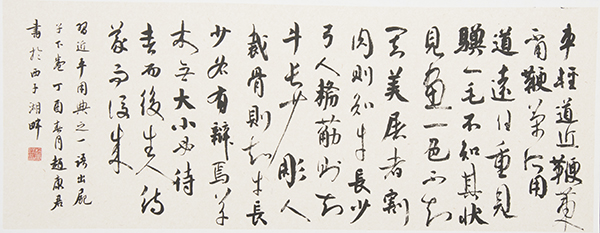 車輕道近鞭策
不用鞭策所用
道遠任重見
驥一毛不知其狀
見畫一色不知
其美屠者割
肉則知牛長少
弓人剺筋則知
牛長少彫人
裁骨則知牛長
少各有辯焉草
木無大小必待
春而後生人待
義而後成
習近平用典之一語出尸
子下卷丁酉春月趙康
書於西子湖畔